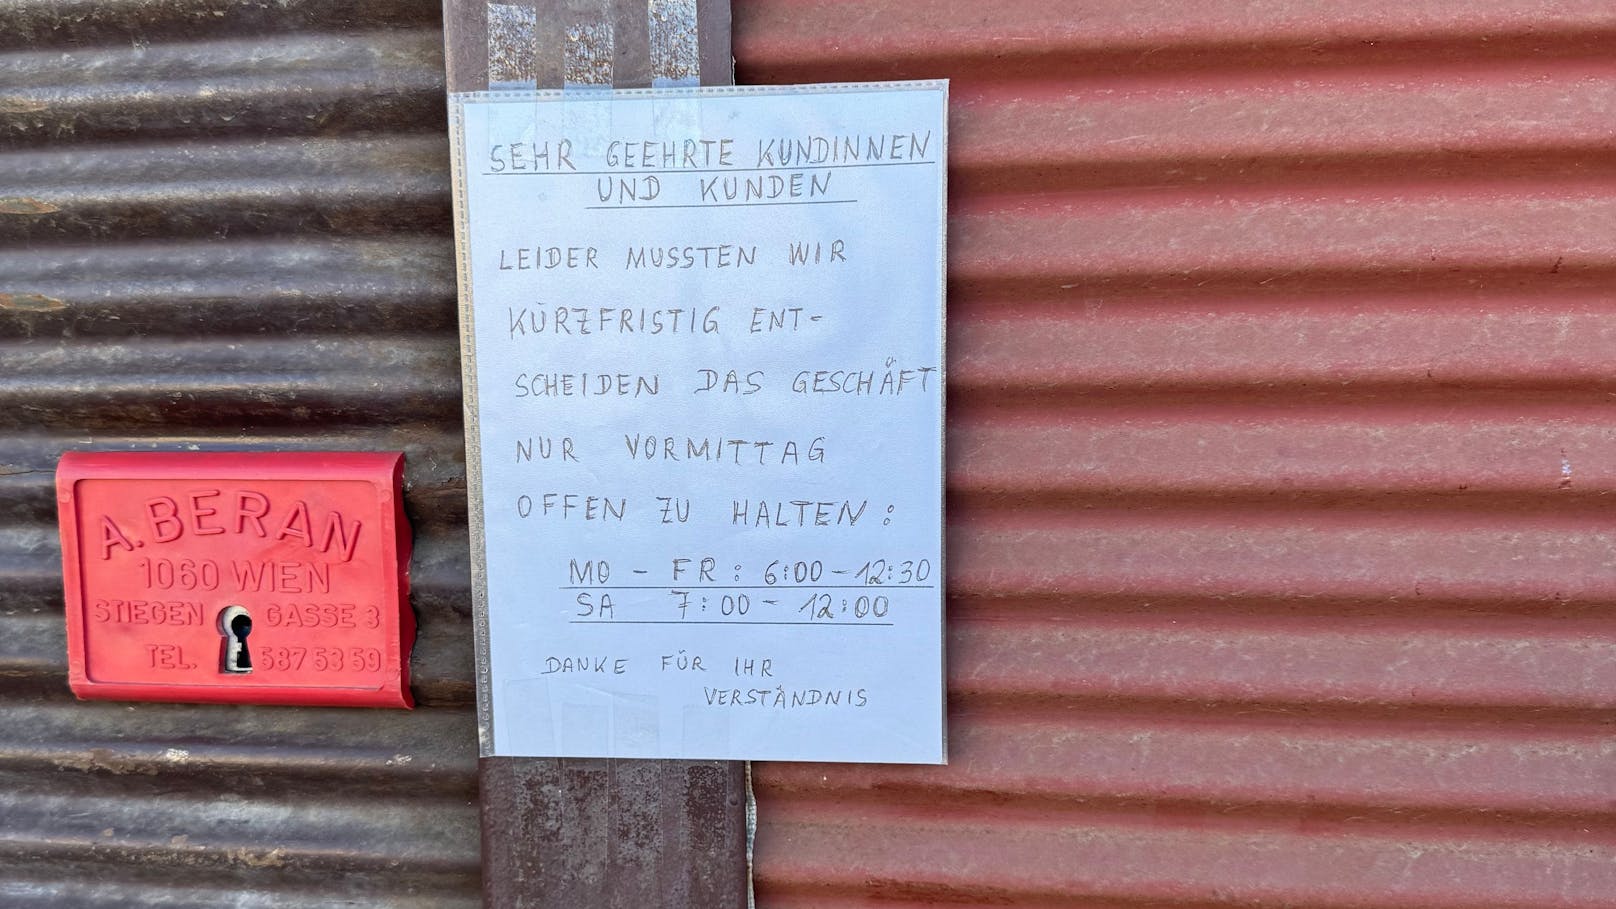 SEHR GEEHRTE KUNDINNEN
UND KUNDEN
LEIDER MUSSTEN WIR
KURZFRISTIG ENT-
SCHEIDEN DAS GESCHÄFT
NUR VORMITTAG
OFFEN ZU HALTEN:
MO - FR: 6:00-12:30
SA 7:00 - 12:00
DANKE FÜR IHR
VERSTÄNDNIS
A. BERAN
1060 WIEN
STIEGEN GASSE 3
TEL. 587 53 59